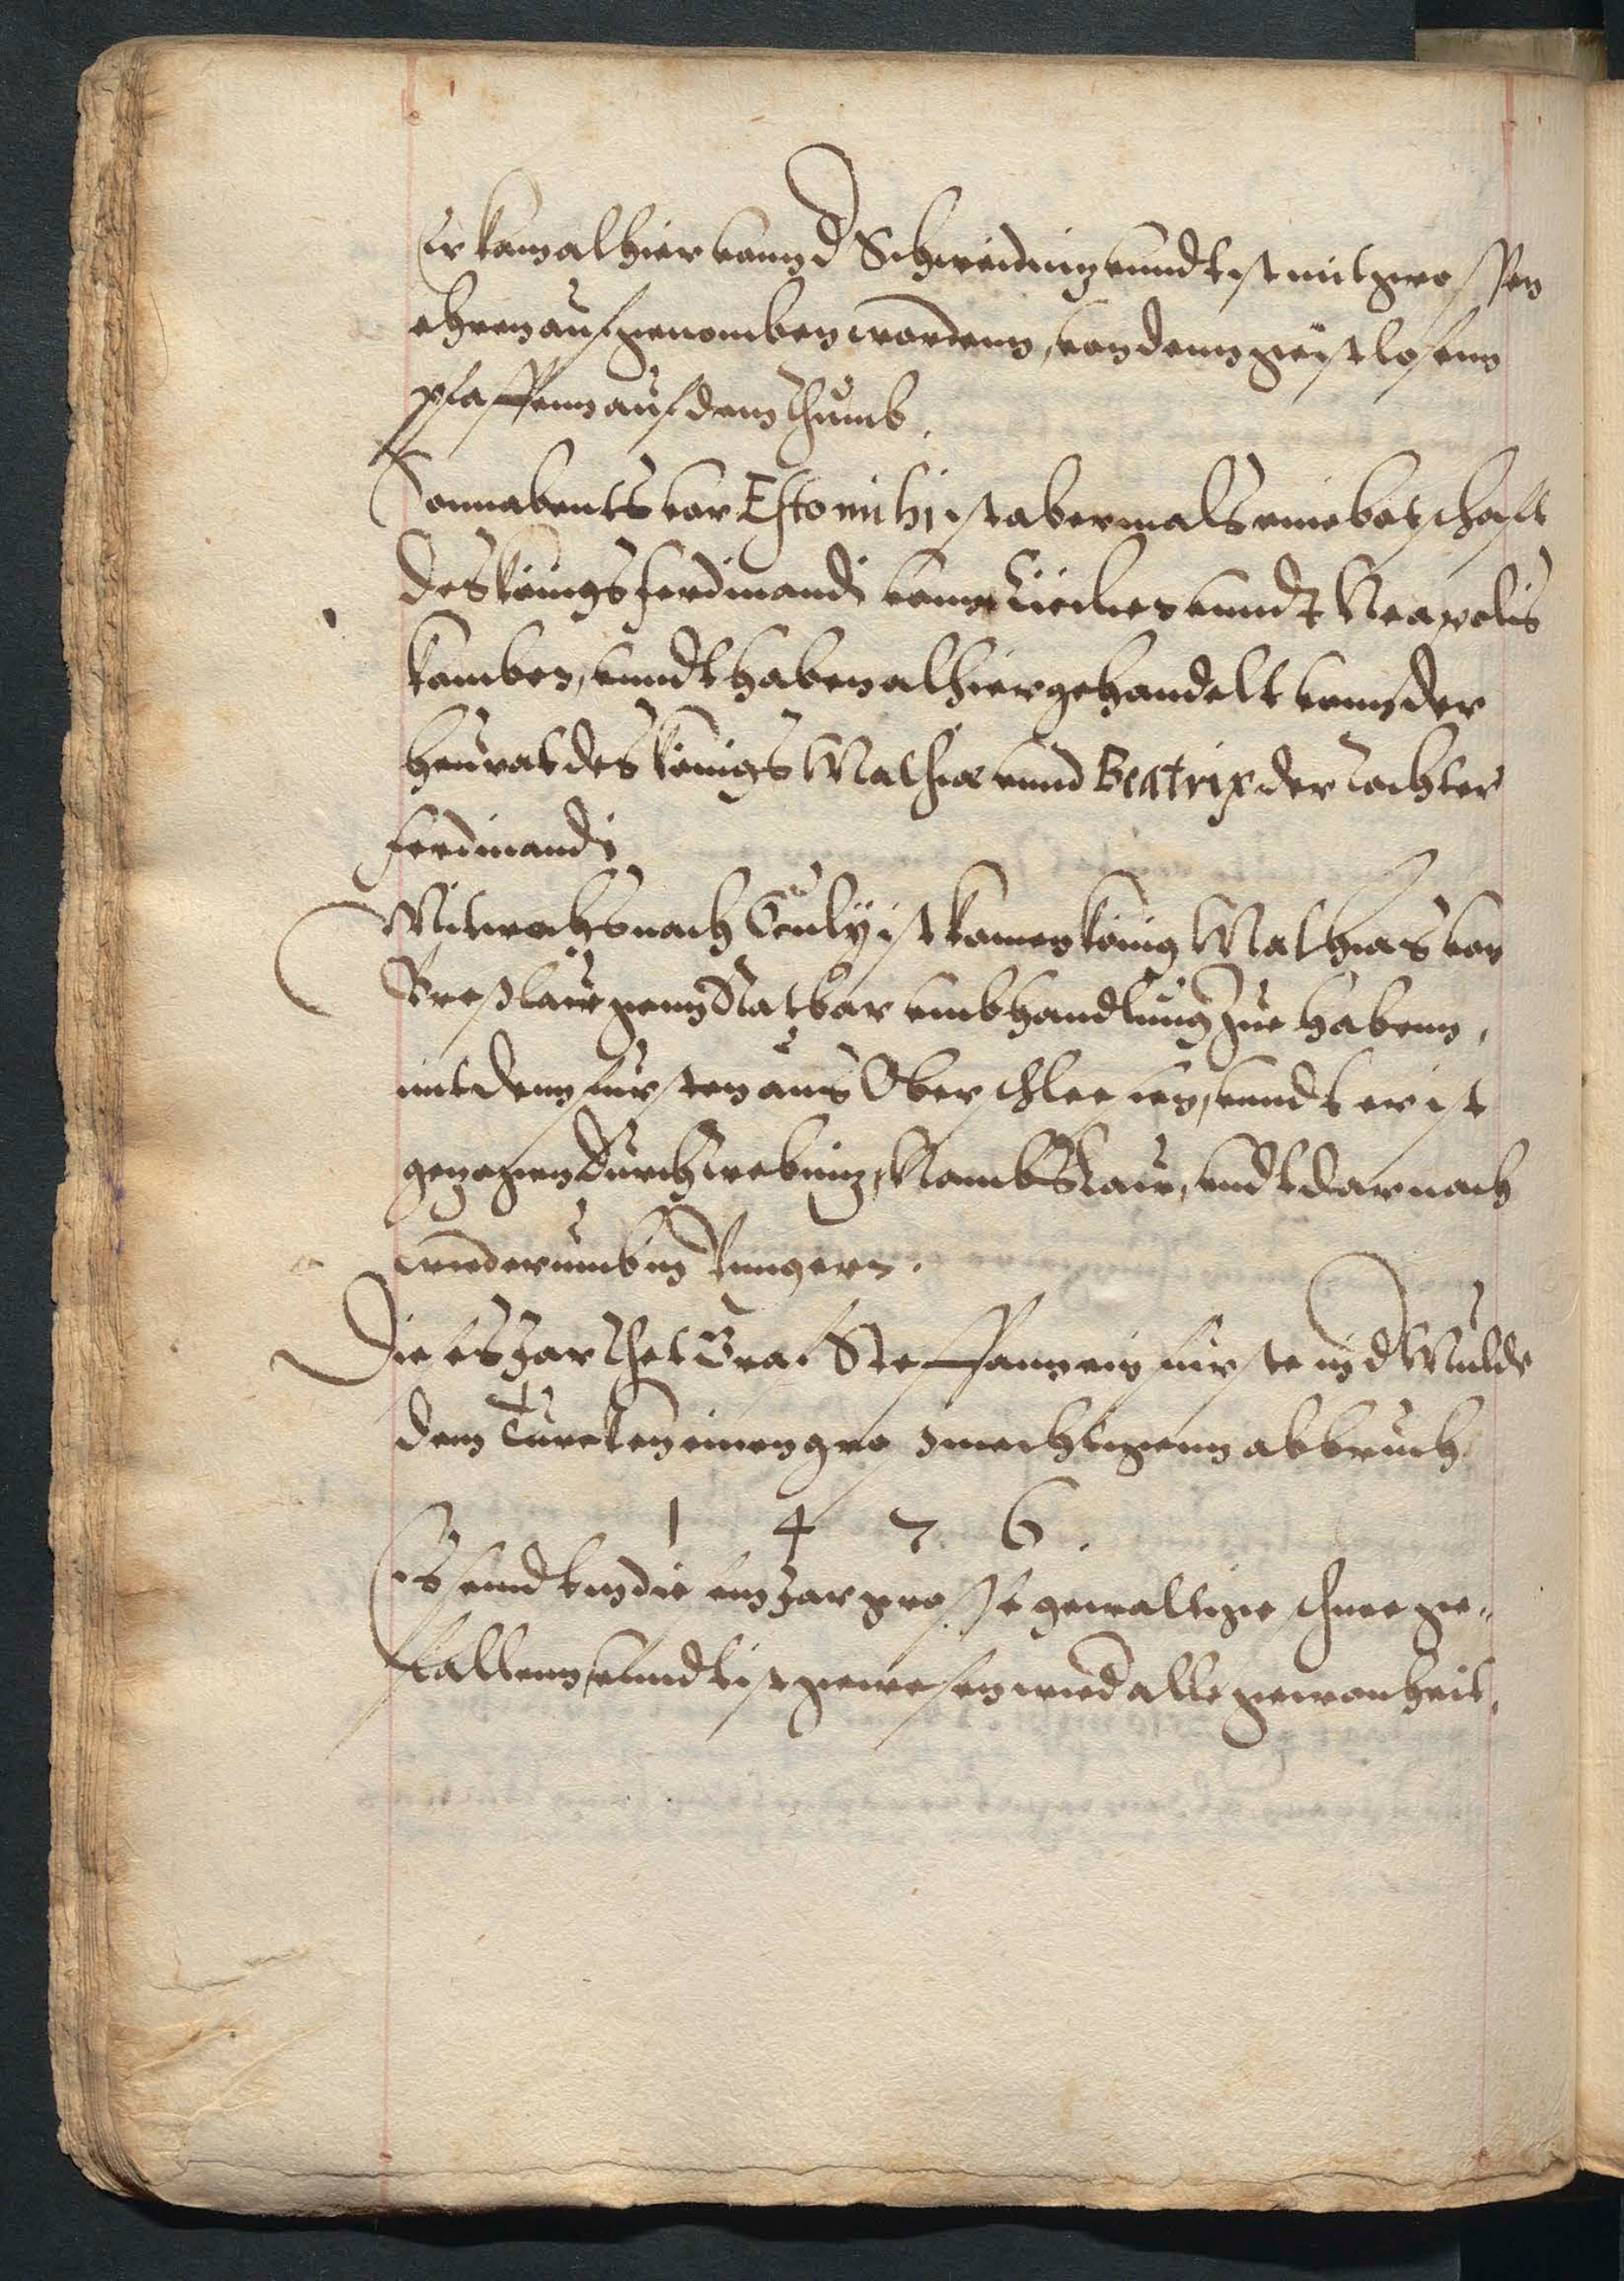 Er kam alhier vonn d Schweidnitz vnndt ist mit grossen
ehren aufgenomben wordenn, von denn geistlosenn
pfaffenn auf dem Thumb.
Sonnabents vor Esto mihi ist abermals eine botschafft
des königs Ferdinandi vonn Cicilien vnndt Neapolis
kamben, vnndt haben alhier gehandelt vonn der
heurat des königs Mathiæ vnnd Beatrix der tochter
Ferdinandi
Mitwochs nach Oculy ist komen könig Mathias von
Breßlaw genn Ratbar vmb handlung zue habenn,
mit denn fursten aus Ober schlesien, vnndt er ist
gezogen durch trebnig, Nambslaw, vndt darnach
wiederumb in Vngern.
Dieses Jar thet Graf Steffann ein furste in d Muldo
dem Turcken einen gros mechtigenn abbruch
1 4 7 6.
Es sindt in diesem Jar grosse gewaltige schnee ge-
fallenn, vnndt ist gewesen wied alle gewonheit.